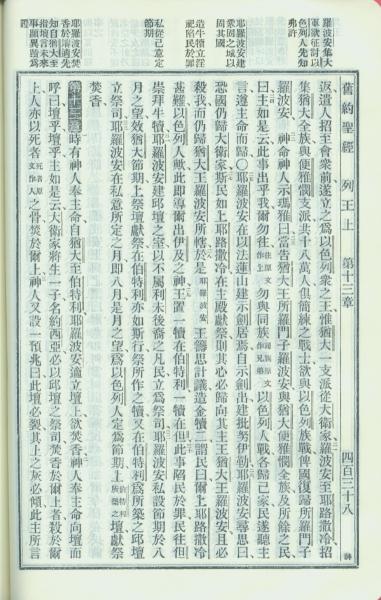 舊約聖經 列王上 第十三章 四百三十八
羅波安集大
軍欲征討以
色列人先知
弗許
耶羅波安建
衆固之城以
固其國
造牛犢立淫
祀陷民於罪
私從己意定
節期
耶羅波安焚
香於壇適先
知自猶大至
指壇言未來
事顯異蹟爲
證
返遣人招至會衆前遂立之爲以色列衆之王惟猶大一支派從大衛家羅波安至耶路撒冷招
集猶大全族與便雅憫支派共十八萬人俱簡練之戰士欲與以色列族戰俾國復歸所羅門子
羅波安 神命神人示瑪雅曰當告猶大王所羅門子羅波安與猶大便雅憫全族及所餘之民
曰主如是云此事出乎我爾勿往往原文作上勿與同族同族原文作兄弟以色列人戰各歸己家民遂聽主
言遵主命而歸耶羅波安在以法蓮山建示劍居焉自示劍出建毗努伊勒耶羅波安尋思曰
恐國仍歸大衛家斯民如上耶路撒冷在主殿獻祭則其心必歸向其主王猶大王羅波安且必
殺我而仍歸猶大王羅波安所轄於是耶羅波安王籌思計議造金犢二謂民曰爾上耶路撒冷
甚難以色列人歟此即導爾出伊及之神王置一犢在伯特利一犢在但此事陷民於罪民往但
崇拜牛犢耶羅波安建邱壇之室以不屬利未後裔之凡民立爲祭司耶羅波安私設節期於八
月之望效猶大節期上祭壇獻祭在伯特利亦如斯行祭所作之犢又在伯特利爲所築之邱壇
立祭司耶羅波安在私意所定之月即八月是月之望爲以色列人定爲節期上伯特利所築之壇獻祭
焚香
第十三章 時有神人奉主命自猶大至伯特利耶羅波安適立壇上欲焚香神人奉主命向壇而
呼曰壇乎壇乎主如是云大衛家將生一子名約西亞必以邱壇之祭司焚香於爾上者殺於爾
上人亦以死者死者原文作人之骨焚於爾上神人又設一預兆曰此壇必裂其上之灰必傾此主所言